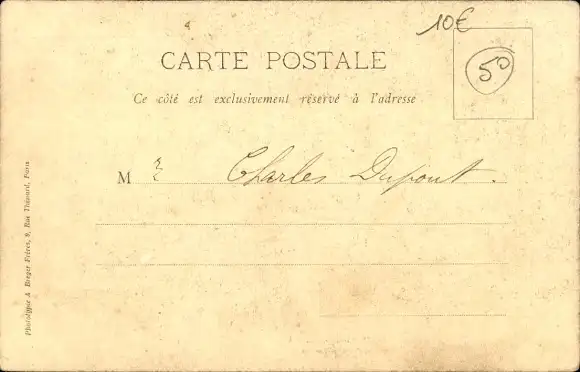 10€
CARTE POSTALE
50
Ce côté est exclusivement réservé à l'adresse
M r Charles Dupont.
Phototypie A Berger Frères, 9, Rue Thénard, Paris